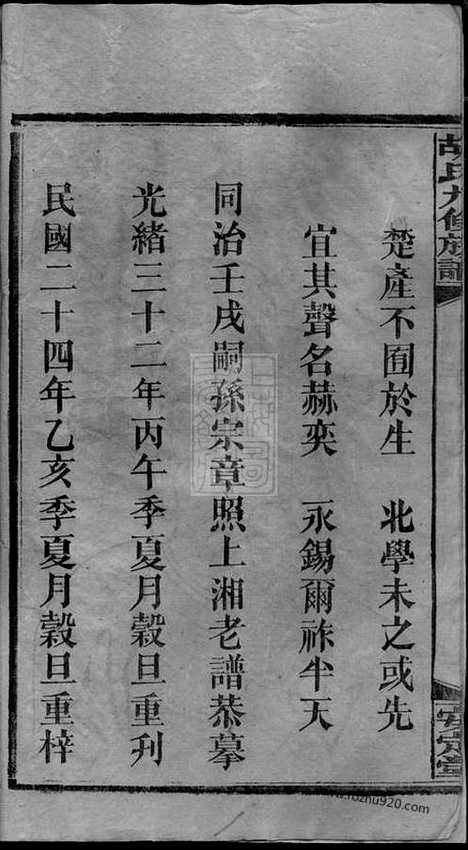 胡氏九修族譜
楚產不囿於生 北學未之或先
宜其聲名赫奕 永錫爾祚半天
同治壬戌嗣孫宗章照上湘老譜恭摹
光緒三十二年丙午季夏月穀旦重刋
民國二十四年乙亥季夏月穀旦重梓
安定堂